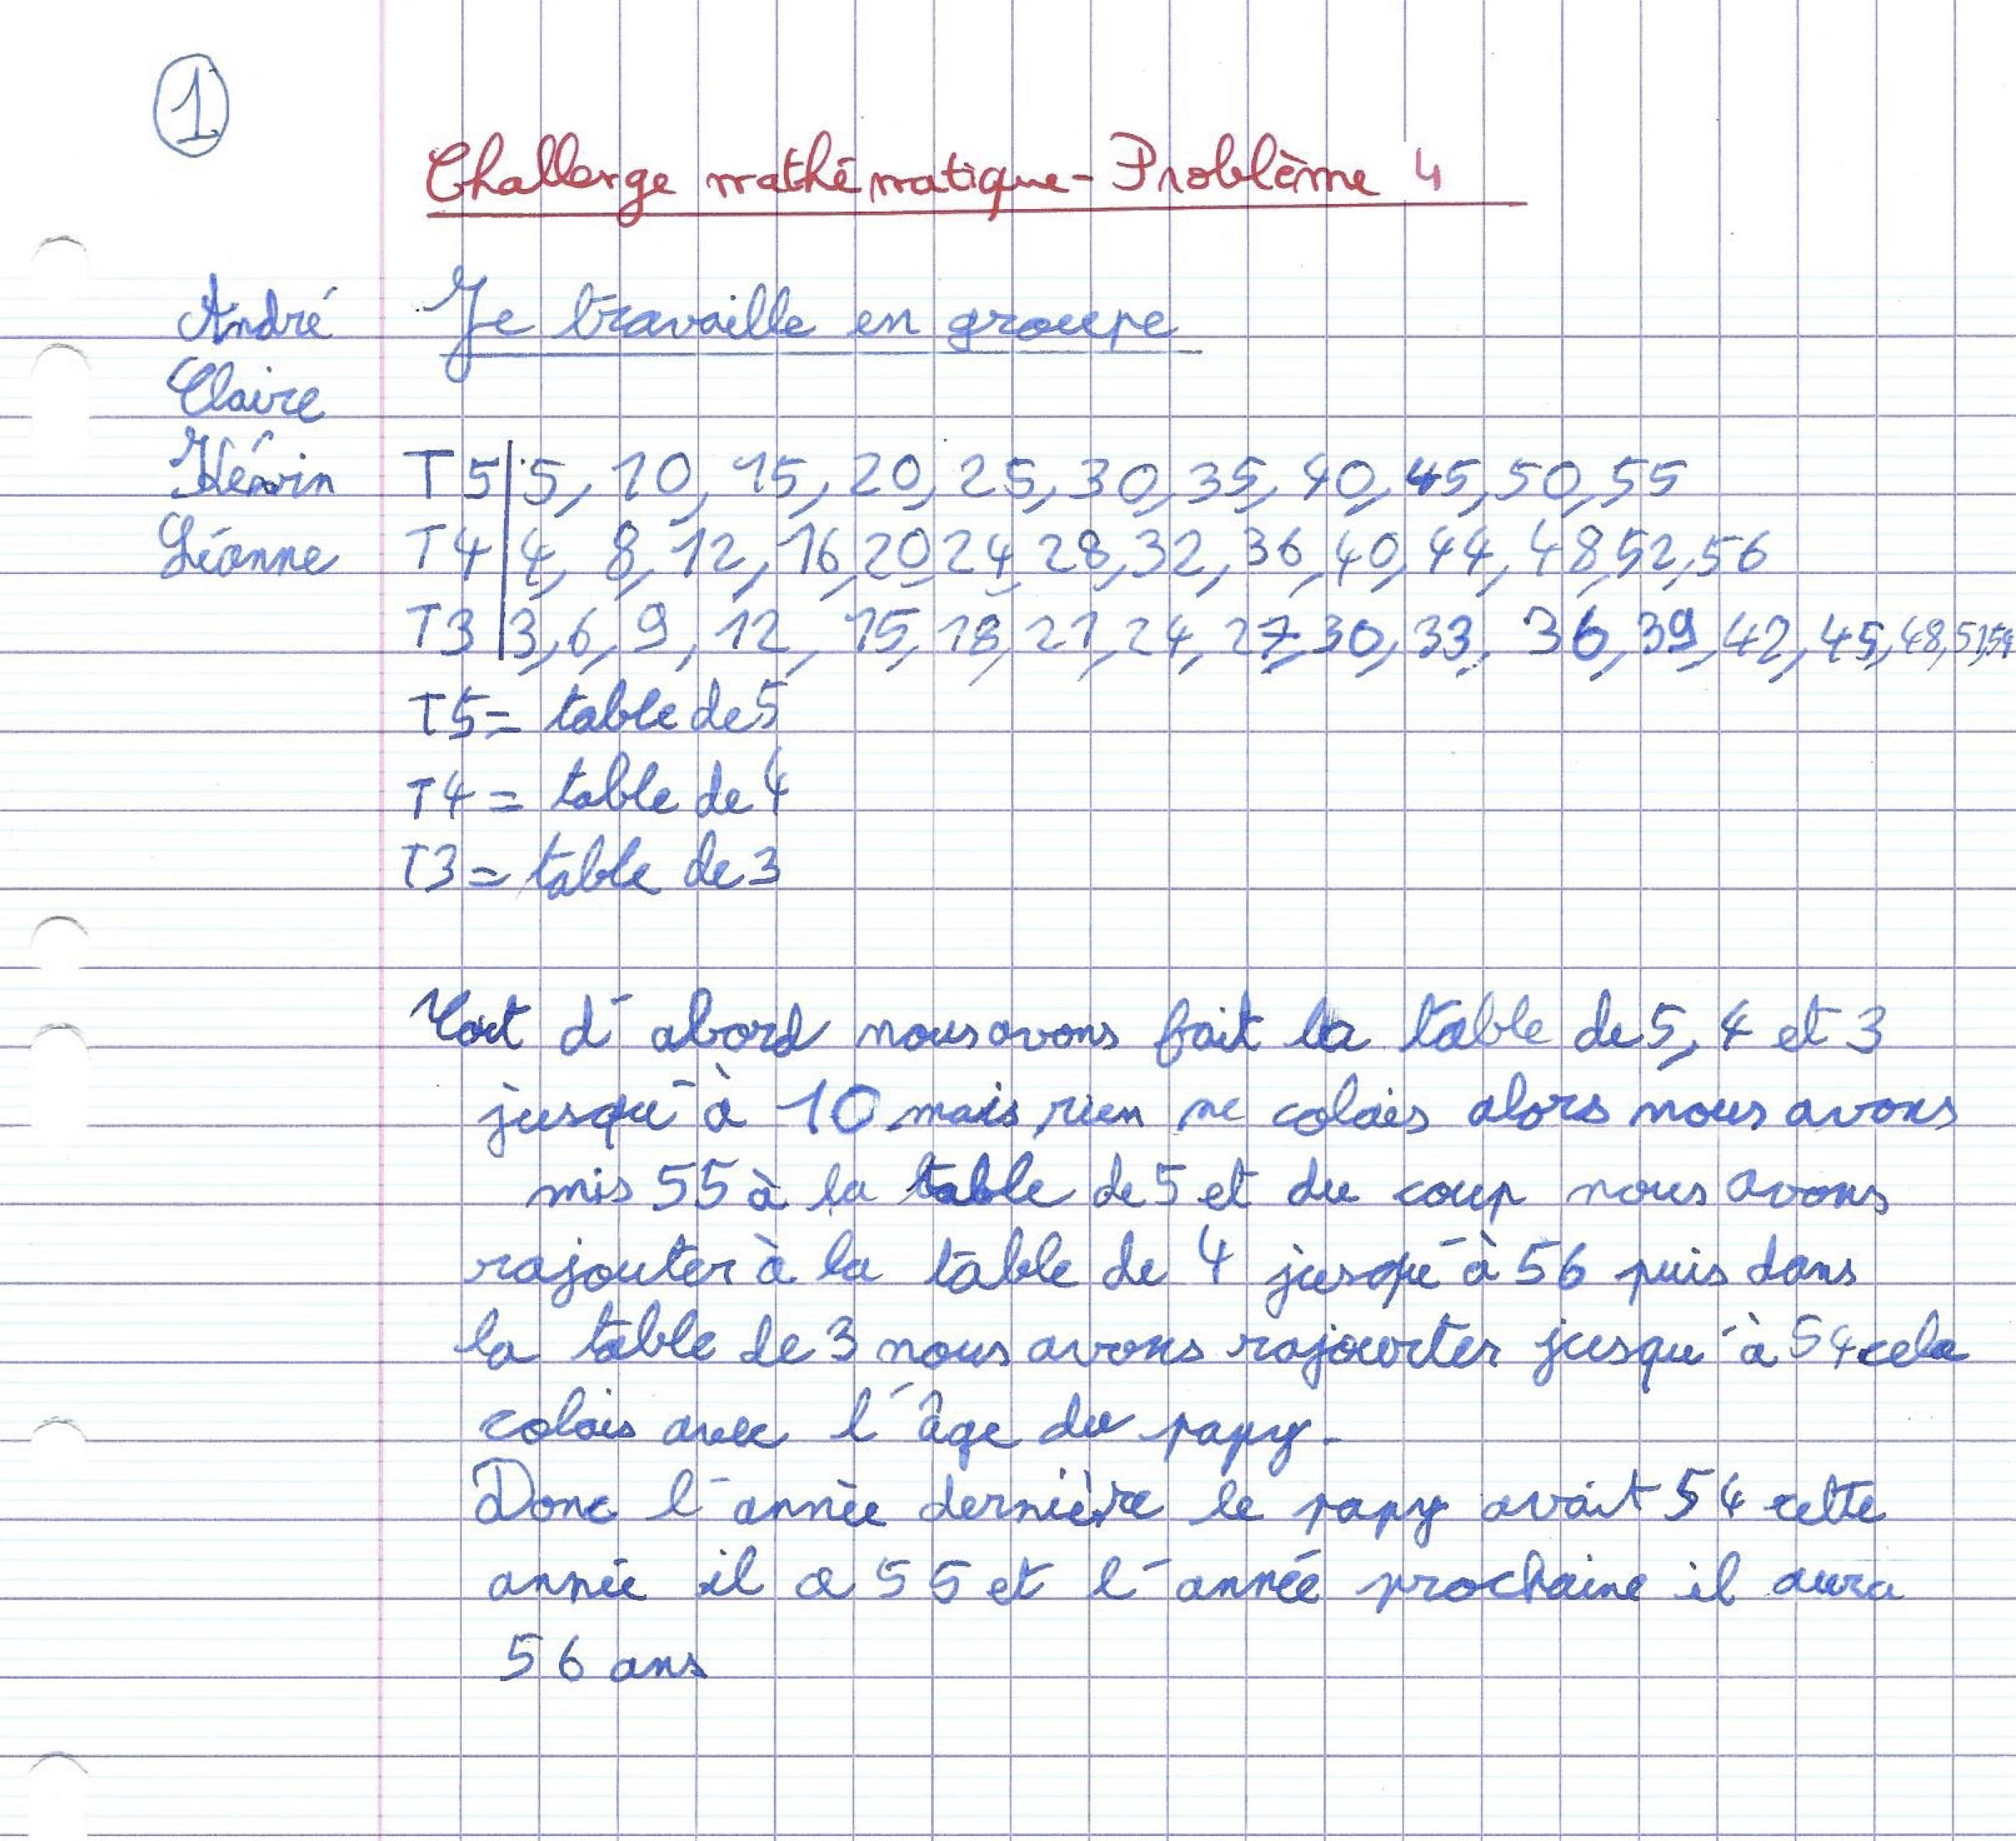 1
Challenge mathématique - Problème 4
André Je travaille en groupe
Claire
Kévin T5 | 5, 10, 15, 20, 25, 30, 35, 40, 45, 50, 55
Léanne T4 | 4, 8, 12, 16, 20, 24, 28, 32, 36, 40, 44, 48, 52, 56
T3 | 3, 6, 9, 12, 15, 18, 21, 24, 27, 30, 33, 36, 39, 42, 45, 48, 51, 54
T5 = table de 5
T4 = table de 4
T3 = table de 3
Tout d'abord nous avons fait la table de 5, 4 et 3
jusqu'à 10 mais rien ne colais alors nous avons
mis 55 à la table de 5 et du coup nous avons
rajouter à la table de 4 jusqu'à 56 puis dans
la table de 3 nous avons rajouter jusqu'à 54 cela
colais avec l'âge du papy.
Donc l'année dernière le papy avait 54 cette
année il a 55 et l'année prochaine il aura
56 ans